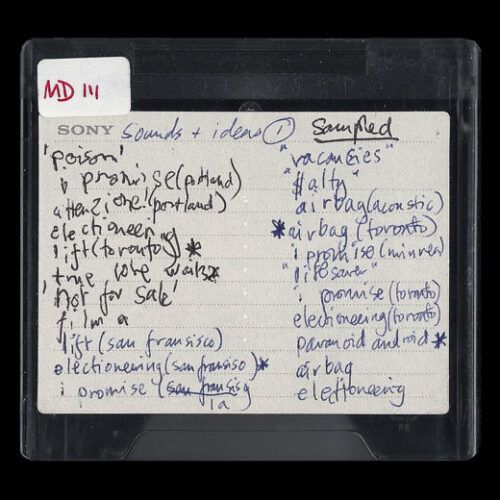 MD 111
SONY sounds + ideas ① Sampled
'poison'
i promise (portland)
attenzione! (portland)
electioneering
lift (toronto) *
true love waits *
'not for sale'
f. i'm a
lift (san fransisco)
electioneering (san fransiso) *
i promise (san fransis
la)
"vacancies"
"salty"
airbag (acoustic)
* airbag (toronto)
i promise (minnea
"lifesaver"
i promise (toronto)
electioneering (toronto)
paranoid android *
airbag
electioneering